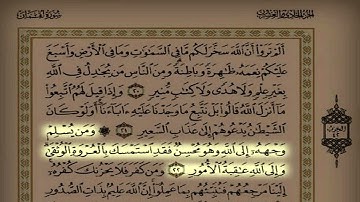 سورة لقمان
الجزء الحادي والعشرون
أَلَمْ تَرَوْا أَنَّ اللَّهَ سَخَّرَ لَكُم مَّا فِي السَّمَٰوَٰتِ وَمَا فِي الْأَرْضِ وَأَسْبَغَ
عَلَيْكُمْ نِعَمَهُ ظَٰهِرَةً وَبَاطِنَةً وَمِنَ النَّاسِ مَن يُجَٰدِلُ فِي اللَّهِ
بِغَيْرِ عِلْمٍ وَلَا هُدًى وَلَا كِتَٰبٍ مُّنِيرٍ ٢٠ وَإِذَا قِيلَ لَهُمُ اتَّبِعُوا
مَا أَنزَلَ اللَّهُ قَالُوا بَلْ نَتَّبِعُ مَا وَجَدْنَا عَلَيْهِ ءَابَاءَنَا أَوَلَوْ كَانَ
الشَّيْطَٰنُ يَدْعُوهُمْ إِلَىٰ عَذَابِ السَّعِيرِ ٢١ وَمَن يُسْلِمْ
وَجْهَهُ إِلَى اللَّهِ وَهُوَ مُحْسِنٌ فَقَدِ اسْتَمْسَكَ بِالْعُرْوَةِ الْوُثْقَىٰ
وَإِلَى اللَّهِ عَٰقِبَةُ الْأُمُورِ ٢٢ وَمَن كَفَرَ فَلَا يَحْزُنكَ كُفْرُهُ
إِلَيْنَا مَرْجِعُهُمْ فَنُنَبِّئُهُم بِمَا عَمِلُوا إِنَّ اللَّهَ عَلِيمٌ بِذَاتِ الصُّدُورِ